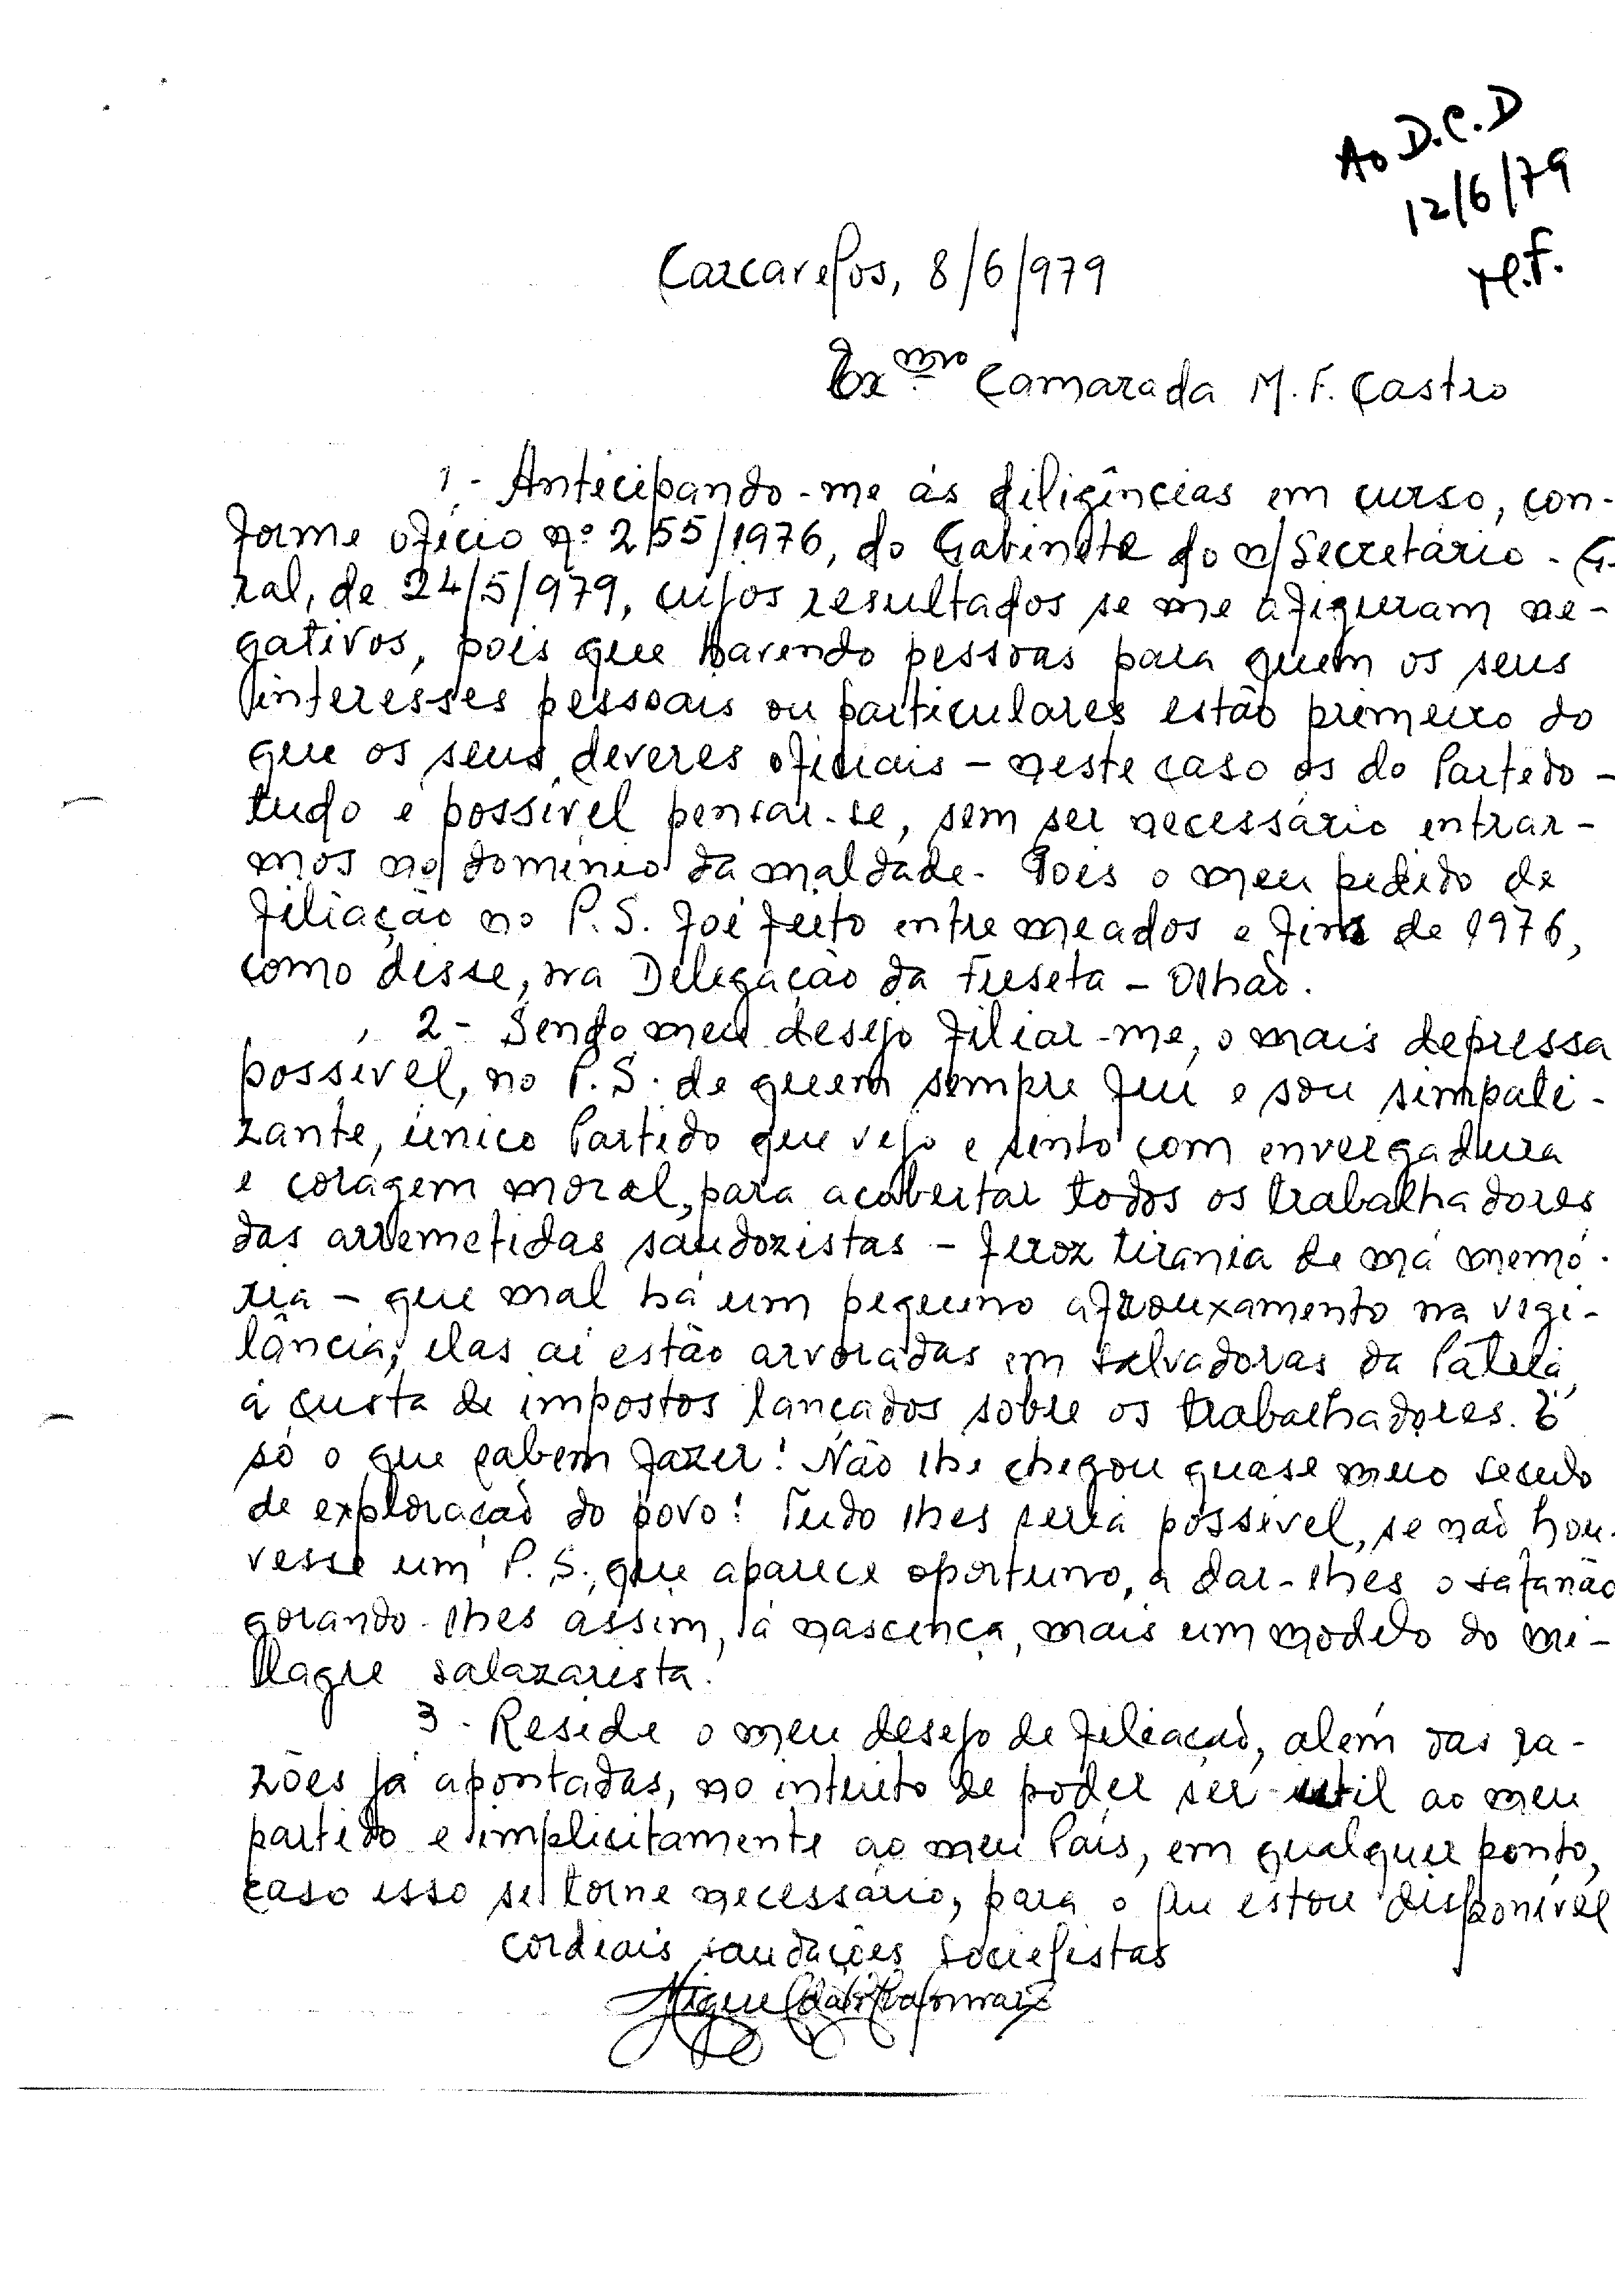 Ao D.C.D
12/6/79
M.F.
Carcavelos, 8/6/979
Exmo Camarada M. F. Castro
1 - Antecipando-me ás diligências em curso, con-
forme ofício nº 2155/1976, do Gabinete do n/Secretário - G.
ral, de 24/5/979, cujos resultados se me afiguram ne-
gativos, pois que havendo pessoas para quem os seus
interesses pessoais ou particulares estão primeiro do
que os seus deveres oficiais - neste caso os do Partido -
tudo é possível pensar-se, sem ser necessário entrar-
mos no domínio da maldade. Pois o meu pedido de
filiação no P.S. foi feito entre meados e fins de 1976,
como disse, na Delegação da Fuseta - Olhão.
2 - Sendo meu desejo filiar-me, o mais depressa
possível, no P.S. de quem sempre fui e sou simpati-
zante, único Partido que vejo e sinto com envergadura
e coragem moral, para acobertar todos os trabalhadores
das arremetidas saudozistas - feroz tirania de má memó-
ria - que mal há um pequeno afrouxamento na vigi-
lância, elas aí estão arvoradas em salvadoras da Pátria,
á custa de impostos lançados sobre os trabalhadores. É
só o que sabem fazer! Não lhe chegou quase meio seculo
de exploração do povo! Tudo lhes seria possível, se não hou-
vesse um P.S., que aparece oportuno, a dar-lhes o safanão
gorando-lhes assim, á nascença, mais um modelo do mi-
lagre salazarista.
3 - Reside o meu desejo de filiação, além das ra-
zões já apontadas, no intuito de poder ser útil ao meu
partido e implicitamente ao meu País, em qualquer ponto,
caso isso se torne necessário, para o que estou disponível
cordiais saudações socialistas
Miguel